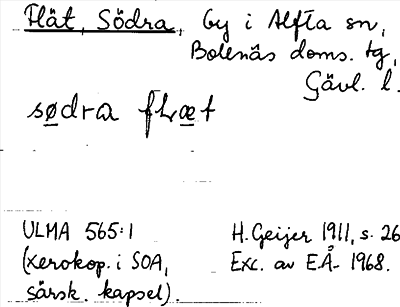 Flät, Södra, By i Alfta sn,
Bolenäs doms. tg,
Gävl. l.
sødra flæt
ULMA 565:1
(xerokop. i SOA,
särsk. kapsel).
H. Geijer 1911, s. 26
Exc. av E.Å. 1968.